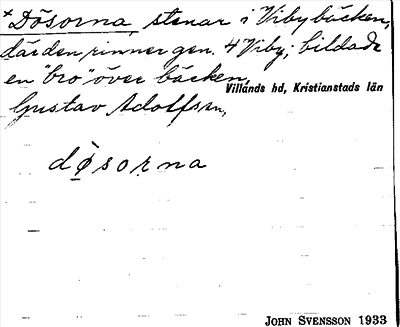 *Dösorna, stenar i Vibybäcken,
där den rinner gen. 4 Viby; bildade
en "bro" över bäcken,
Villands hd, Kristianstads län
Gustav Adolfs sn,
dø̀sorna
JOHN SVENSSON 1933